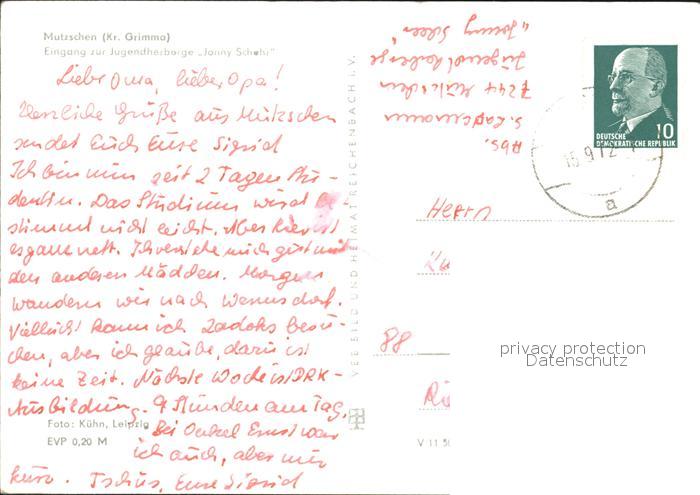 Mutzschen (Kr. Grimma)
Eingang zur Jugendherberge „Jonny Schehr"
Liebe Oma, lieber Opa!
Herzliche Grüße aus Mutzschen
sendet Euch Eure Sigrid
Ich bin nun seit 2 Tagen Stu-
dentin. Das Studium wird be
stimmt nicht leicht. Aber hier ist
es ganz nett. Ich verstehe mich gut mit
den anderen Mädchen. Morgen
wandern wir nach Wermsdorf.
Vielleicht kann ich besu-
chen, aber ich glaube, darin ist
keine Zeit. Nächste Woche ist DRK-
Ausbildung. 9 Stunden am Tag.
Bei Onkel Ernst war
ich auch, aber nur
kurz. Tschüs, Eure Sigrid
Foto: Kühn, Leipzig
EVP 0,20 M
VEB BILD UND HEIMAT REICHENBACH i. V.
Abs.
S.
7244 Mutzschen
Jugendherberge
„Jonny Scheer"
10
DEUTSCHE
DEMOKRATISCHE REPUBLIK
15.9.72
a
Herrn
88
V 11 50
privacy protection
Datenschutz